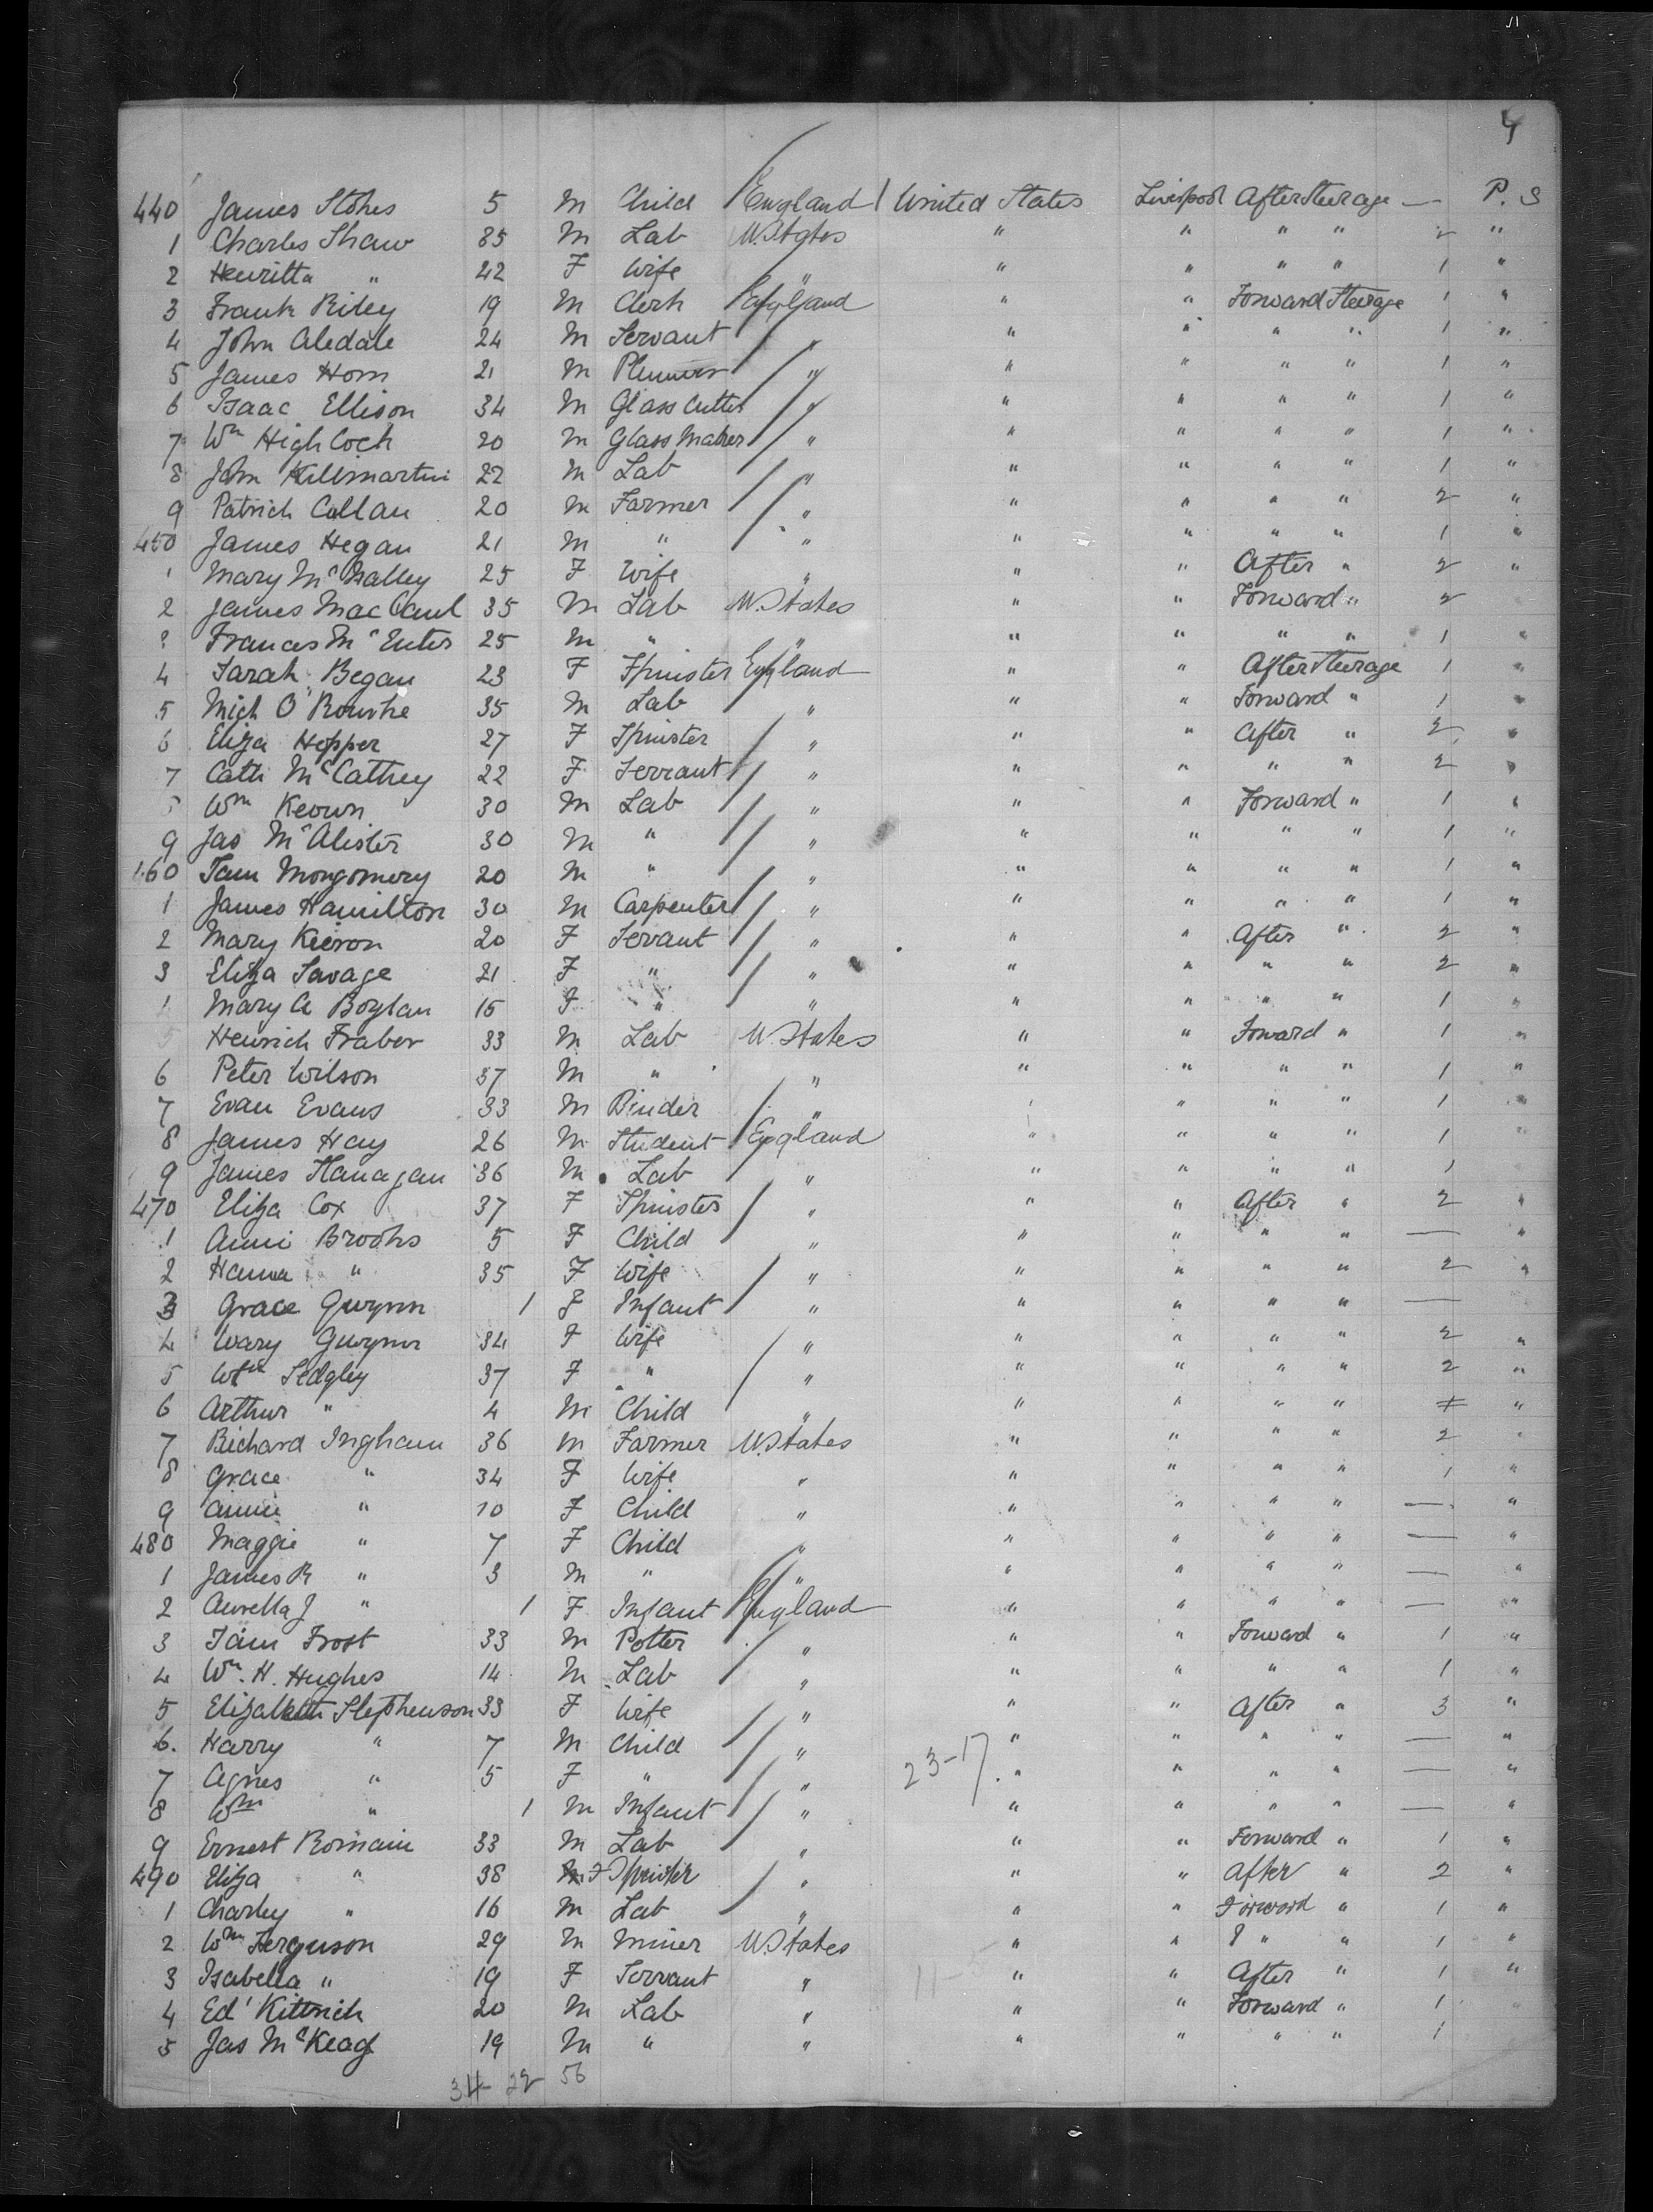 4
440 James Stokes 5 M Child England United States Liverpool After Steerage — P. S
1 Charles Shaw 35 M Lab U. States " " " " 2 "
2 Henritta " 42 F Wife " " " " " 1 "
3 Frank Riley 19 M Clerk England " " Forward Steerage 1 "
4 John Aledale 24 M Servant " " " " " 1 "
5 James Horn 21 M " " " " " 1 "
6 Isaac Ellison 34 M Glass Cutter " " " " " 1 "
7 Wm High Cock 20 M Glass Maker " " " " " 1 "
8 John Killimartin 22 M Lab " " " " " 1 "
9 Patrick Callan 20 M Farmer " " " " " 2 "
450 James Hegan 21 M " " " " " " 1 "
1 Mary McNalley 25 F Wife " " " After " 2 "
2 James Mac Caul 35 M Lab U. States " " Forward " 2
3 Frances McEnter 25 M " " " " " " 1 "
4 Sarah Began 23 F Spinster England " " After Steerage 1 "
5 Mich O'Rourke 35 M Lab " " " Forward " 1 "
6 Eliza Hopper 27 F Spinster " " " After " 2 "
7 Cath McCathey 22 F Servant " " " " " 2 "
8 Wm Keown 30 M Lab " " " Forward " 1 "
9 Jas McAlister 30 M " " " " " " 1 "
460 Sam Mongomery 20 M " " " " " " 1 "
1 James Hamilton 30 M Carpenter " " " " " 1 "
2 Mary Kieron 20 F Servant " " " After " 2 "
3 Eliza Savage 21 F " " " " " " 2 "
4 Mary A Boylan 15 F " " " " " " 1 "
5 Heinrich Fraber 33 M Lab U. States " " Foward " 1 "
6 Peter Wilson 37 M " " " " " " 1 "
7 Evan Evans 33 M Binder " " " " 1 "
8 James Hay 26 M Student England " " " " 1
9 James Flanagan 36 M Lab " " " " " 1
470 Eliza Cox 37 F Spinster " " " After " 2 "
1 Annie Brooks 5 F Child " " " " " — "
2 Hanna " 35 F Wife " " " " " 2 "
3 Grace Gwynn 1 F Infant " " " " " —
4 Mary Gwynn 34 F Wife " " " " " 2 "
5 Sedgley 37 F " " " " " " 2 "
6 Arthur " 4 M Child " " " " " "
7 Richard Ingham 36 M Farmer U. States " " " " 2 "
8 Grace " 34 F Wife " " " " " 1 "
9 Annie " 10 F Child " " " " " — "
480 Maggie " 7 F Child " " " " " — "
1 James R " 3 M " " " " " " — "
2 Aurella J " 1 F Infant England " " " " — "
3 Sam Frost 33 M Potter " " " Forward " 1 "
4 Wm. H. Hughes 14 M Lab " " " " " 1 "
5 Elizabeth Stephenson 33 F Wife " " " After " 3 "
6. Harry " 7 M Child " " " " " — "
23-17
7 Agnes " 5 F " " " " " " — "
8 Wm " 1 M Infant " " " " " — "
9 Ernest Romain 33 M Lab " " " Forward " 1 "
490 Eliza " 38 F Spinster " " " After " 2 "
1 Charley " 16 M Lab " " " Forward " 1 "
2 Wm Ferguson 29 M Miner U. States " " " " 1 "
3 Isabella " 19 F Servant " " " After " 1 "
4 Ed Kittrick 20 M Lab " " " Forward " 1 "
5 Jas McKeag 19 M " " " " " " 1
34 22 56